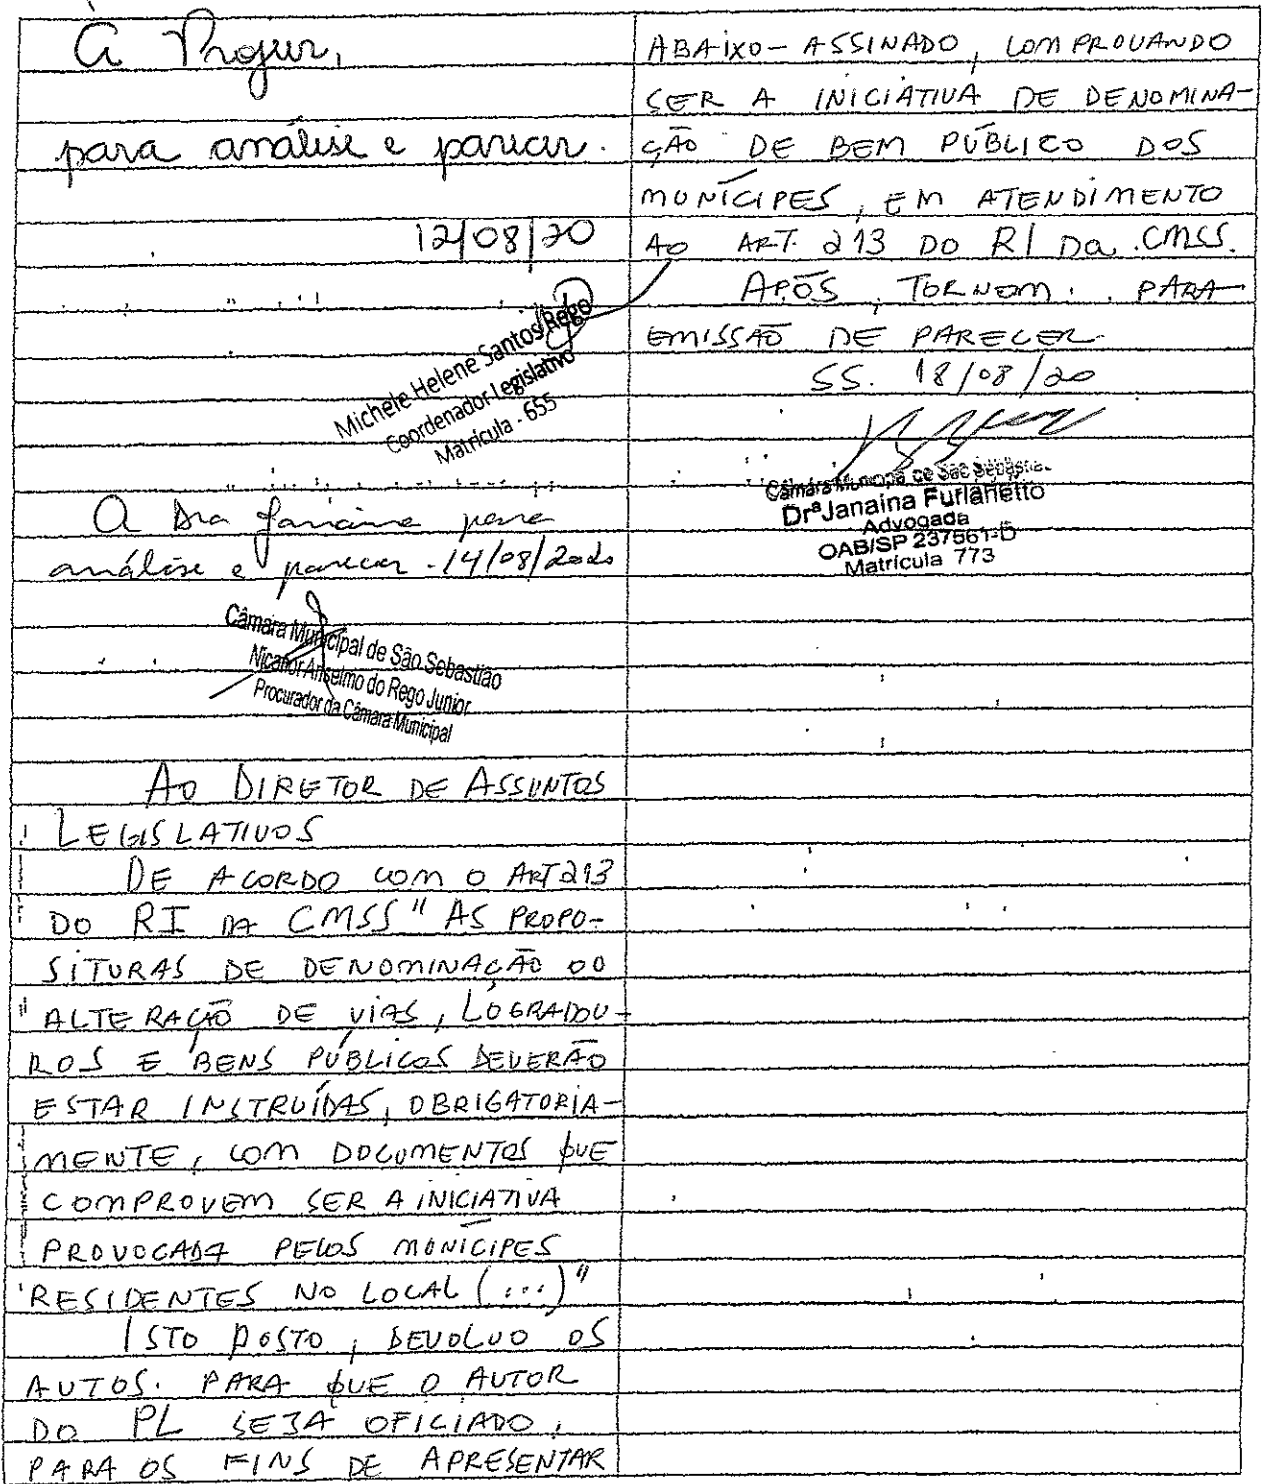 À Projur,
para análise e parecer.
12/08/20
Michele Helene Santos Rego
Coordenador Legislativo
Matrícula - 655
A Dra Janaina para
análise e parecer. 14/08/2020
Câmara Municipal de São Sebastião
Nicanor Anselmo do Rego Junior
Procurador da Câmara Municipal
AO DIRETOR DE ASSUNTOS
LEGISLATIVOS
DE ACORDO COM O ART 213
DO RI DA CMSS "AS PROPO-
SITURAS DE DENOMINAÇÃO OU
"ALTERAÇÃO DE VIAS, LOGRADOU-
ROS E BENS PÚBLICOS DEVERÃO
ESTAR INSTRUÍDAS, OBRIGATORIA-
MENTE, COM DOCUMENTOS QUE
COMPROVEM SER A INICIATIVA
PROVOCADA PELOS MUNÍCIPES
RESIDENTES NO LOCAL (...)"
ISTO POSTO, DEVOLVO OS
AUTOS. PARA QUE O AUTOR
DO PL SEJA OFICIADO,
PARA OS FINS DE APRESENTAR
ABAIXO-ASSINADO, COMPROVANDO
SER A INICIATIVA DE DENOMINA-
ÇÃO DE BEM PÚBLICO DOS
MUNÍCIPES, EM ATENDIMENTO
AO ART. 213 DO RI DA CMSS.
APÓS, TORNEM. PARA
EMISSÃO DE PARECER
SS. 18/08/20
Câmara Municipal de São Sebastião
Drª Janaina Furlanetto
Advogada
OAB/SP 237561-D
Matrícula 773